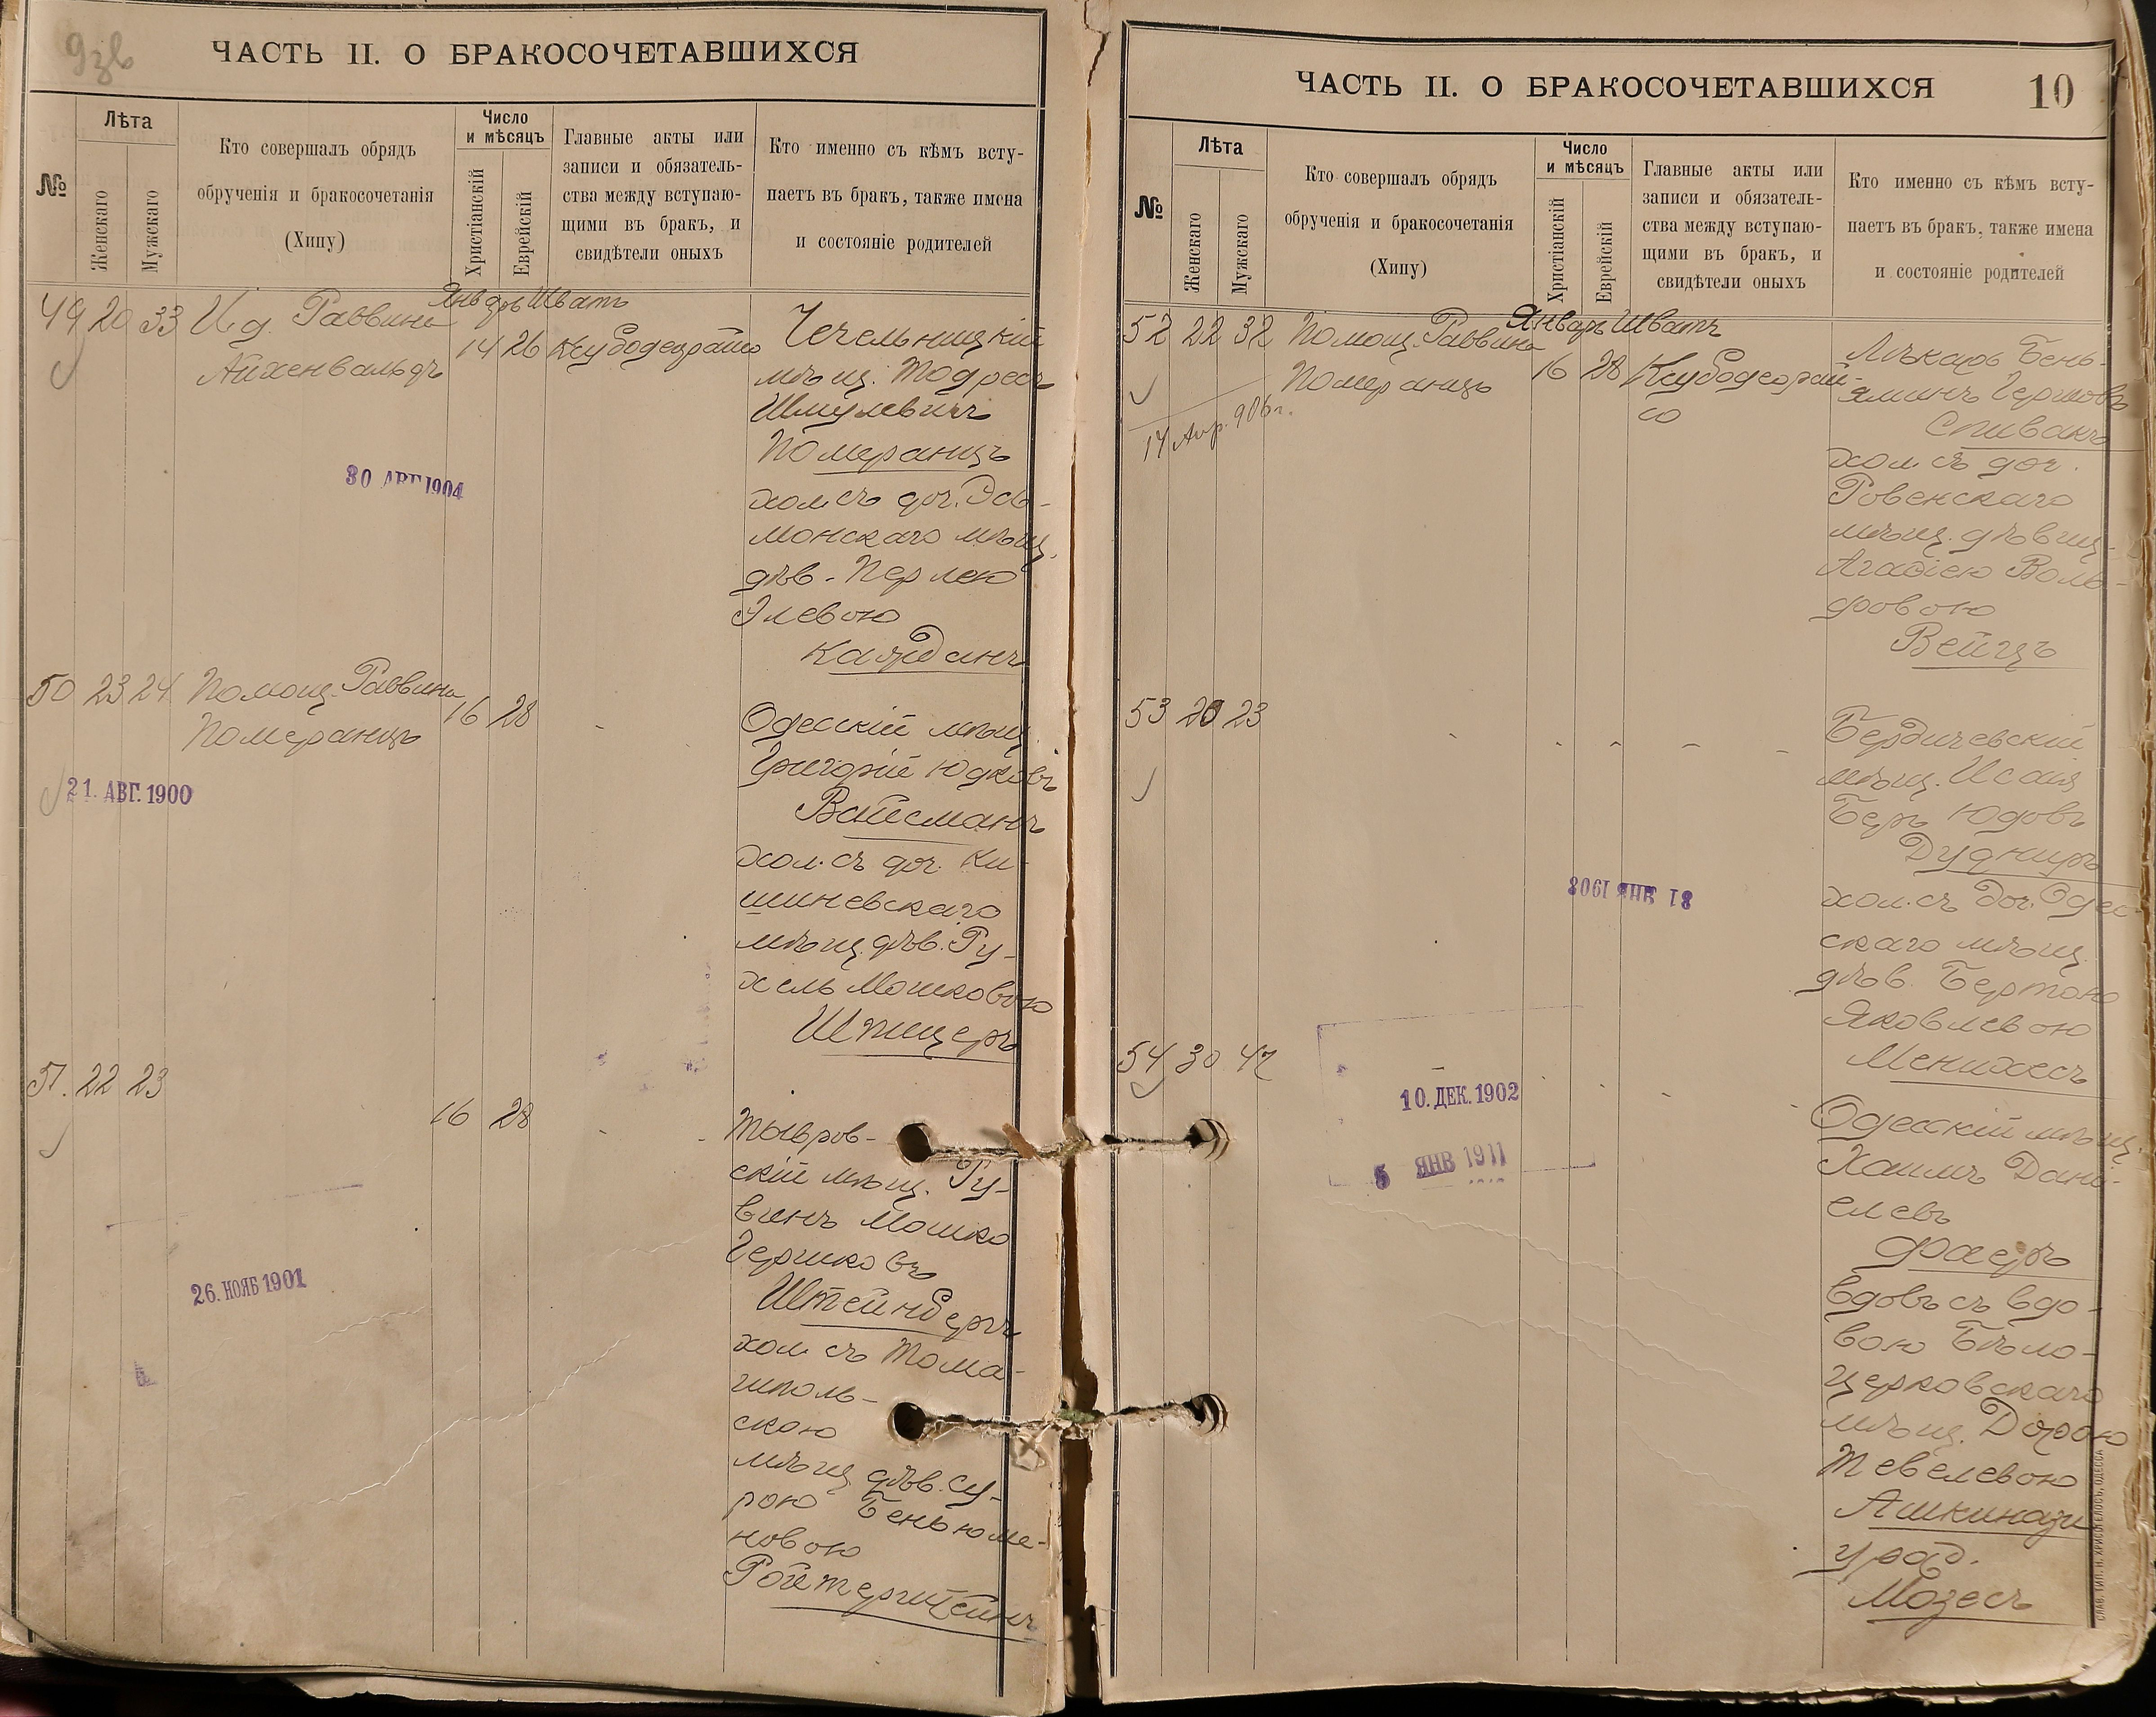 ЧАСТЬ II. О БРАКОСОЧЕТАВШИХСЯ
№
Лѣта
Женскаго
Мужскаго
Кто совершалъ обрядъ
обрученія и бракосочетанія
(Хипу)
Число
и мѣсяцъ
Христіанскій
Еврейскій
Главные акты или
записи и обязатель-
ства между вступаю-
щими въ бракъ, и
свидѣтели оныхъ
Кто именно съ кѣмъ всту-
паетъ въ бракъ, также имена
и состояніе родителей
49 20 33 И.д. Раввина
Айхенвальдъ
Январь Шватъ
14 26
Чечельницкій
мѣщ. Тодресъ
Шмулевичъ
Померанцъ
хол. съ доч.
монскаго мѣщ.
дѣв. Перлею
Элевою
30 АВГ 1904
50 23 24 Помощ. Раввина
Померанцъ
16 28 -
Одесскій мѣщ.
Григорій Юдковъ
Вайсманъ
хол. съ доч. Ки-
шиневскаго
мѣщ. дѣв. Ру-
хель Мошковою
Шпицеръ
21. АВГ. 1900
51. 22 23
16 28 - -
Тывров-
скій мѣщ. Ру-
винъ Мошко
Гершковъ
Штейнбергъ
хол. съ Тома-
шполь-
скою
мѣщ. дѣв. Су-
рою Беньюми-
новою
Ройтерштейнъ
26. НОЯБ 1901
ЧАСТЬ II. О БРАКОСОЧЕТАВШИХСЯ
10
№
Лѣта
Женскаго
Мужскаго
Кто совершалъ обрядъ
обрученія и бракосочетанія
(Хипу)
Число
и мѣсяцъ
Христіанскій
Еврейскій
Главные акты или
записи и обязатель-
ства между вступаю-
щими въ бракъ, и
свидѣтели оныхъ
Кто именно съ кѣмъ всту-
паетъ въ бракъ, также имена
и состояніе родителей
52 22 32 Помощ. Раввина
Померанцъ
Январь Шватъ
16 28
14 Апр. 906 г.
Лѣкарь Бень-
яминъ Гершковъ
Спивакъ
хол. съ доч.
Ровенскаго
мѣщ. дѣвиц.
Агафіею Воль-
фовою
Вейцъ
53 20 23
- - - - -
Бердичевскій
мѣщ. Исаія
Беръ Юдовъ
Дудникъ
хол. съ доч. Одес-
скаго мѣщ.
дѣв. Бертою
Яковлевою
Менихесъ
31 ЯНВ 1903
54 30 42
- - -
Одесскій мѣщ.
Хаимъ Дани-
елевъ
Фаеръ
вдовъ съ вдо-
вою Бѣло-
церковскаго
мѣщ. Дорою
Тевелевою
Ашкинази
урод.
Мозесъ
10. ДЕК. 1902
5 ЯНВ 1911
СЛАВ. ТИП. Н. ХРИСОГЕЛОСЪ, ОДЕССА